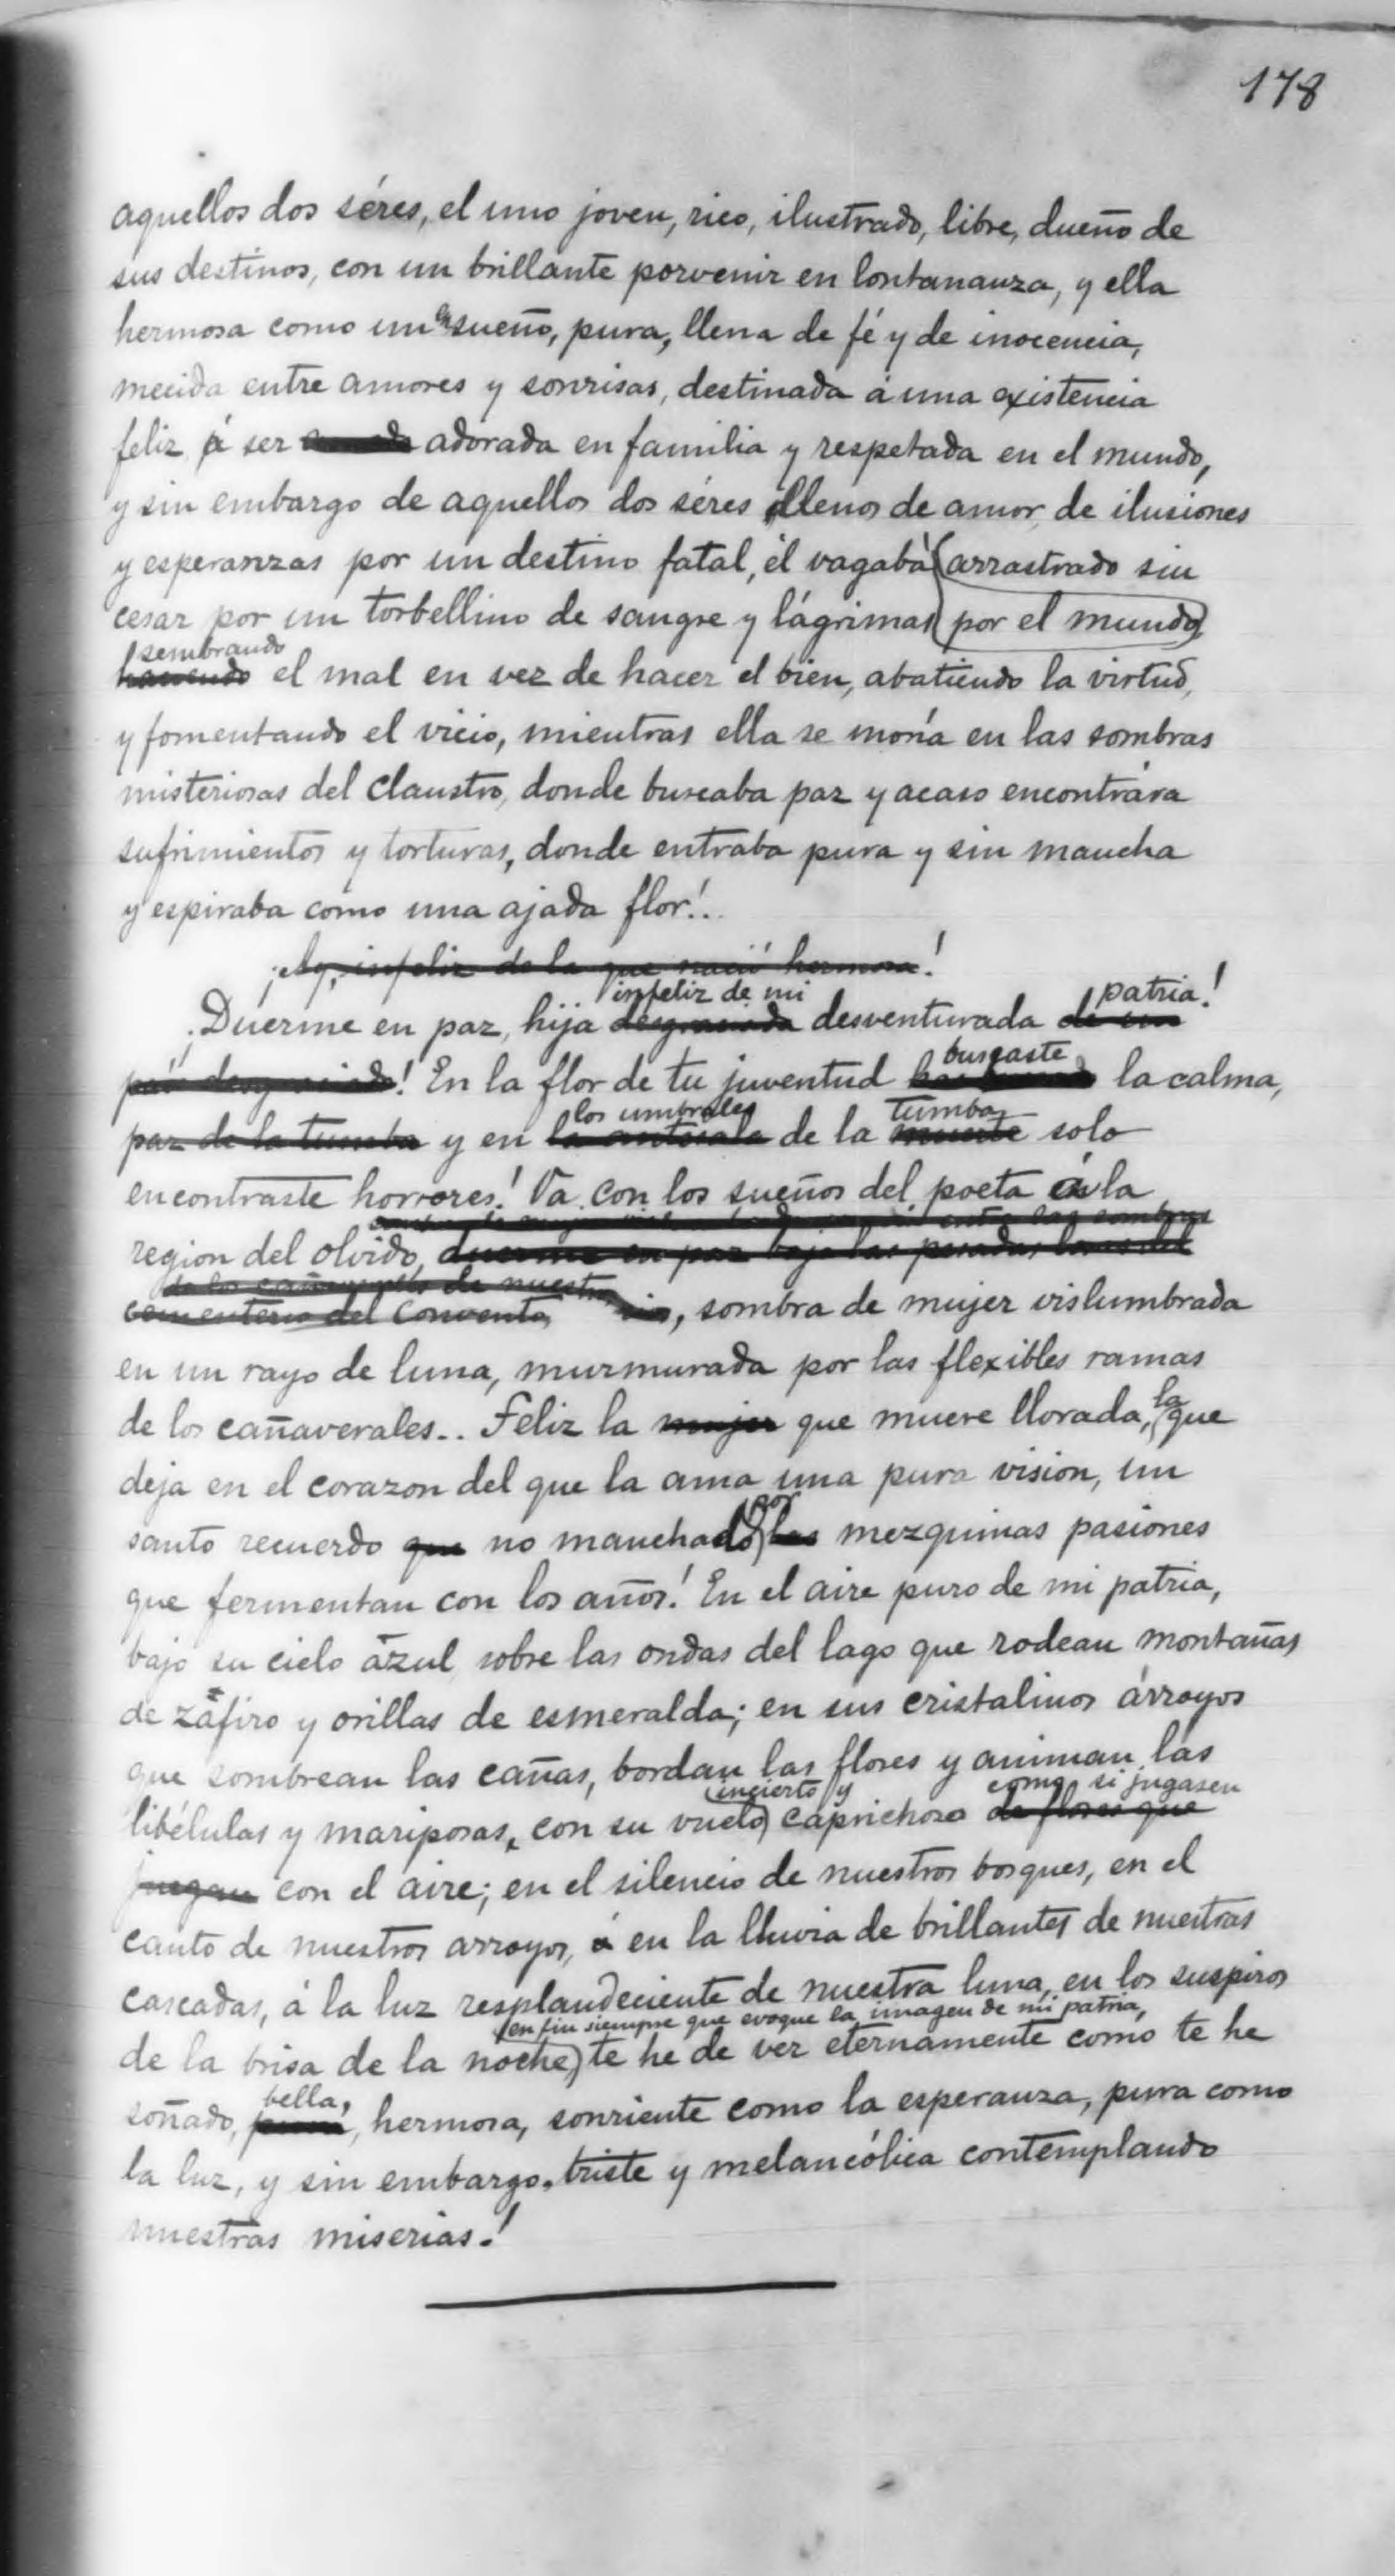 178
aquellos dos séres, el uno joven, rico, ilustrado, libre, dueño de
sus destinos, con un brillante porvenir en lontananza, y ella
hermosa como un ensueño, pura, llena de fé y de inocencia,
mecida entre amores y sonrisas, destinada á una existencia
feliz á ser adorada en familia y respetada en el mundo,
y sin embargo de aquellos dos séres llenos de amor, de ilusiones
y esperanzas por un destino fatal, él vagaba (arrastrado sin
cesar por un torbellino de sangre y lágrimas) por el mundo
sembrando
haciendo el mal en vez de hacer el bien, abatiendo la virtud,
y fomentando el vicio, mientras ella se moría en las sombras
misteriosas del claustro, donde buscaba paz y acaso encontrára
sufrimientos y torturas, donde entraba pura y sin mancha
y espiraba como una ajada flor!..
¡Ay, infeliz de la que nació hermosa!
infeliz de mi patria!
¡Duerme en paz, hija desgraciada desventurada de un
país desgraciado! En la flor de tu juventud la calma,
buscaste
los umbrales tumba
paz de la tumba y en la antesala de la muerte solo
encontraste horrores! Va con los sueños del poeta á la
region del olvido, duerme en paz bajo las pesadas losas del
de los cañaverales de nuestros
cementerio del convento rios, sombra de mujer vislumbrada
en un rayo de luna, murmurada por las flexibles ramas
de los cañaverales.. Feliz la mujer que muere llorada, la que
deja en el corazon del que la ama una pura vision, un
santo recuerdo que no manchado por las mezquinas pasiones
que fermentan con los años! En el aire puro de mi patria,
bajo su cielo azul, sobre las ondas del lago que rodean montañas
de zafiro y orillas de esmeralda; en sus cristalinos arroyos
que sombrean las cañas, bordan las flores y animan las
incierto y como si jugasen
libélulas y mariposas, con su vuelo caprichoso de flores que
juegan con el aire; en el silencio de nuestros bosques, en el
canto de nuestros arroyos, en la lluvia de brillantes de nuestras
cascadas, á la luz resplandeciente de nuestra luna, en los suspiros
en fin siempre que evoque la imagen de mi patria,
de la brisa de la noche) te he de ver eternamente como te he
bella,
soñado, pura, hermosa, sonriente como la esperanza, pura como
la luz, y sin embargo, triste y melancólica contemplando
nuestras miserias!